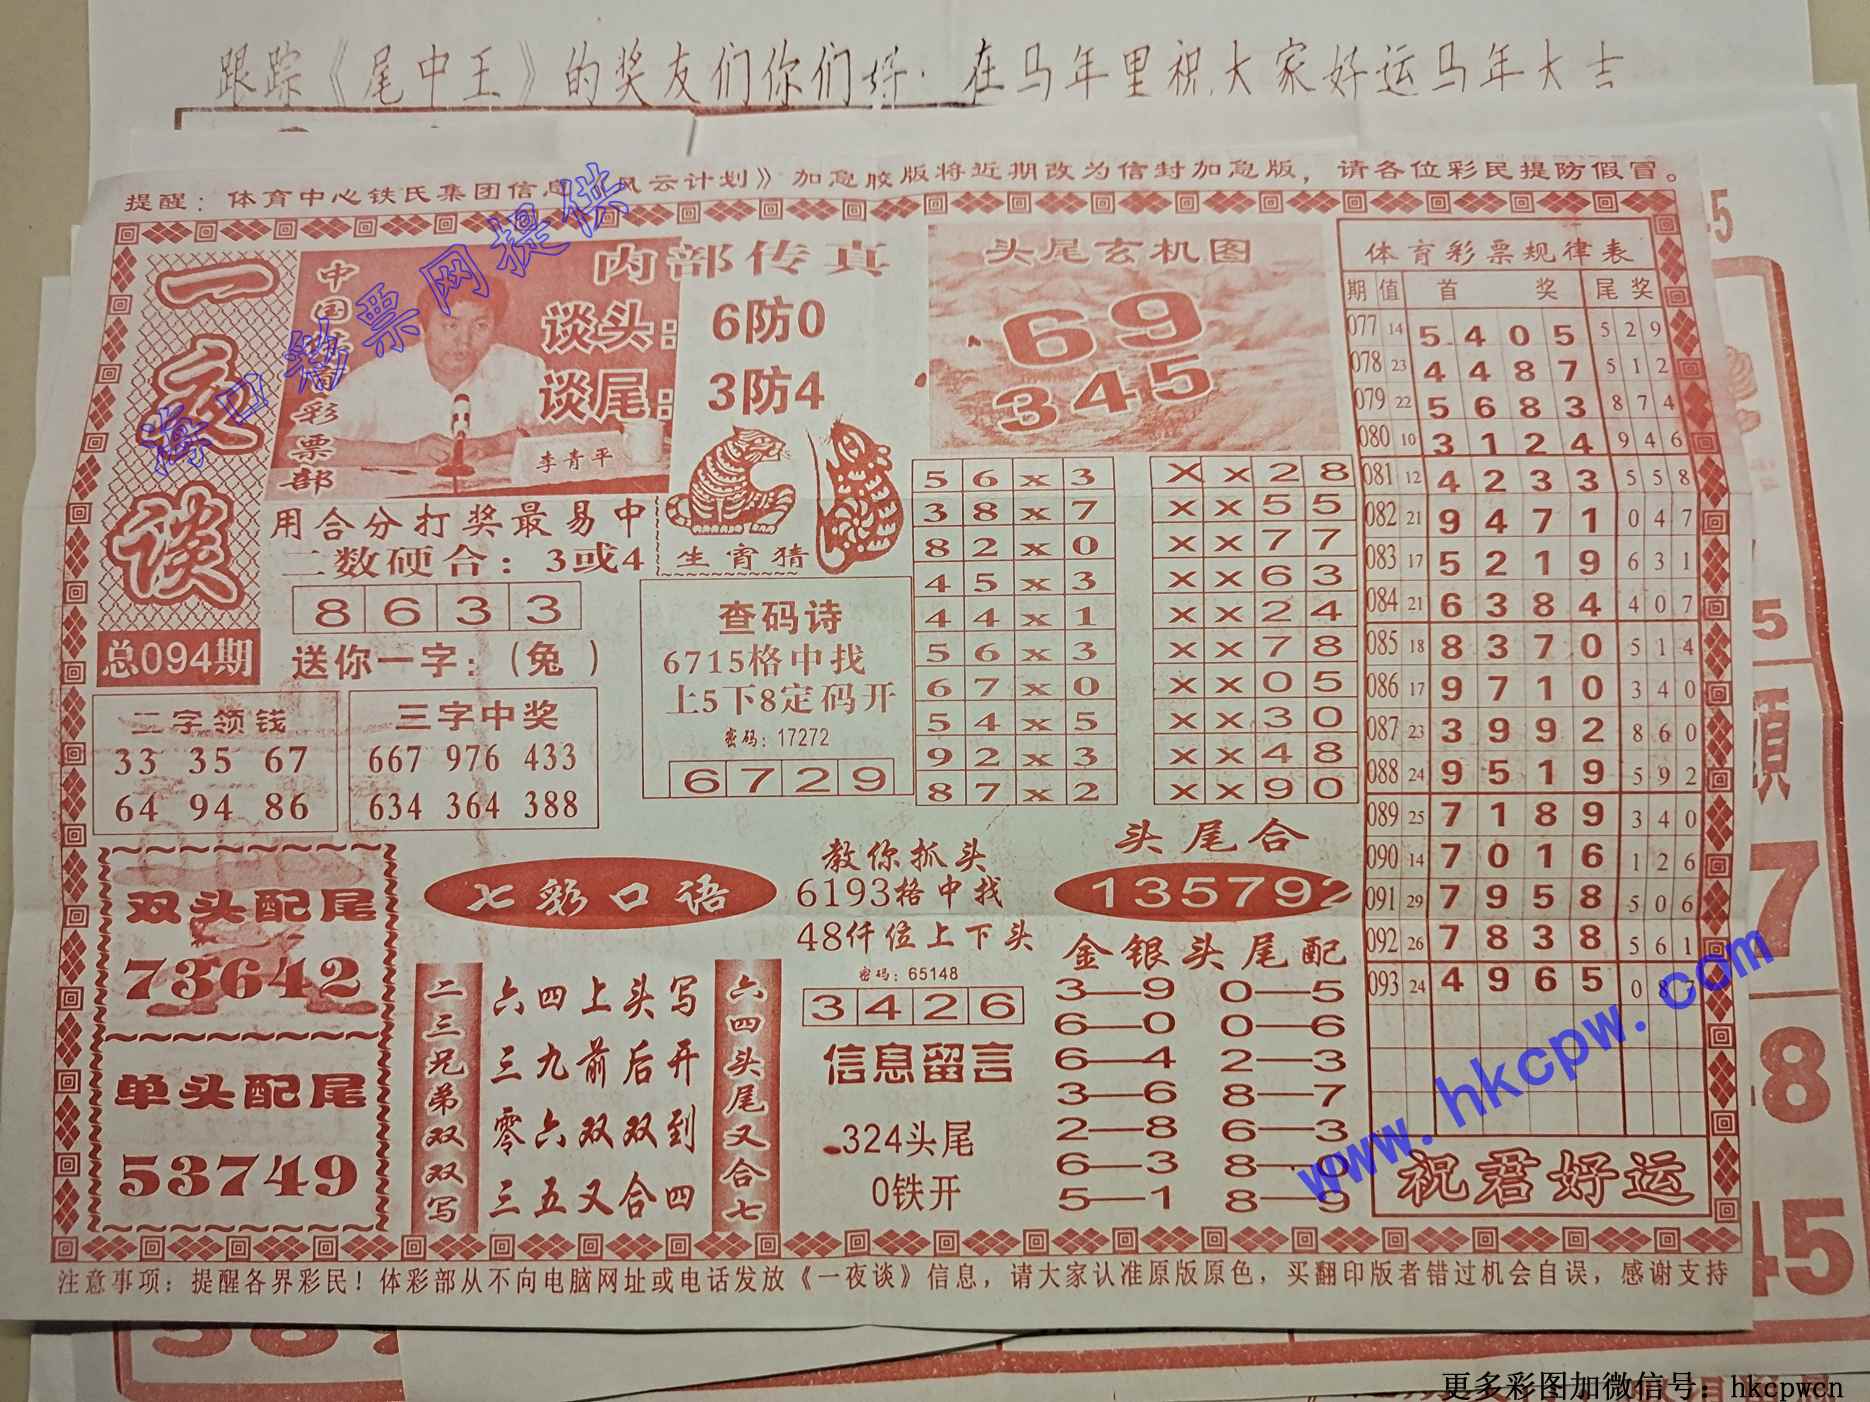 跟踪《尾中王》的奖友们你们好．在马年里祝大家好运马年大吉
提醒：体育中心铁氏集团信息《风云计划》加急胶版将近期改为信封加急版，请各位彩民提防假冒。
一夜谈
总094期
中国体育彩票部
内部传真
谈头：6防0
谈尾：3防4
李青平
用合分打奖最易中
二数硬合：3或4
8 6 3 3
送你一字：(兔 )
生宵猜
二字领钱
33 35 67
64 94 86
三字中奖
667 976 433
634 364 388
查码诗
6715格中找
上5下8定码开
密码：17272
6 7 2 9
头尾玄机图
69
345
5 6 x 3
3 8 x 7
8 2 x 0
4 5 x 3
4 4 x 1
5 6 x 3
6 7 x 0
5 4 x 5
9 2 x 3
8 7 x 2
X x 2 8
x x 5 5
x x 7 7
x x 6 3
x x 2 4
x x 7 8
x x 0 5
x x 3 0
x x 4 8
x x 9 0
体育彩票规律表
期 值 首 奖 尾 奖
077 14 5 4 0 5 5 2 9
078 23 4 4 8 7 5 1 2
079 22 5 6 8 3 8 7 4
080 10 3 1 2 4 9 4 6
081 12 4 2 3 3 5 5 8
082 21 9 4 7 1 0 4 7
083 17 5 2 1 9 6 3 1
084 21 6 3 8 4 4 0 7
085 18 8 3 7 0 5 1 4
086 17 9 7 1 0 3 4 0
087 23 3 9 9 2 8 6 0
088 24 9 5 1 9 5 9 2
089 25 7 1 8 9 3 4 0
090 14 7 0 1 6 1 2 6
091 29 7 9 5 8 5 0 6
092 26 7 8 3 8 5 6 1
093 24 4 9 6 5 0 8
祝君好运
双头配尾
73642
单头配尾
53749
七彩口语
二三兄弟双双写
六四上头写
三九前后开
零六双双到
三五又合四
六四头尾又合七
教你抓头
6193格中找
48仟位上下头
密码：65148
3 4 2 6
信息留言
324头尾
0铁开
头尾合
135792
金银头尾配
3—9 0—5
6—0 0—6
6—4 2—3
3—6 8—7
2—8 6—3
6—3 8—0
5—1 8—9
注意事项：提醒各界彩民！体彩部从不向电脑网址或电话发放《一夜谈》信息，请大家认准原版原色，买翻印版者错过机会自误，感谢支持
海口彩票网提供
www.hkcpw.com
更多彩图加微信号：hkcpwcn